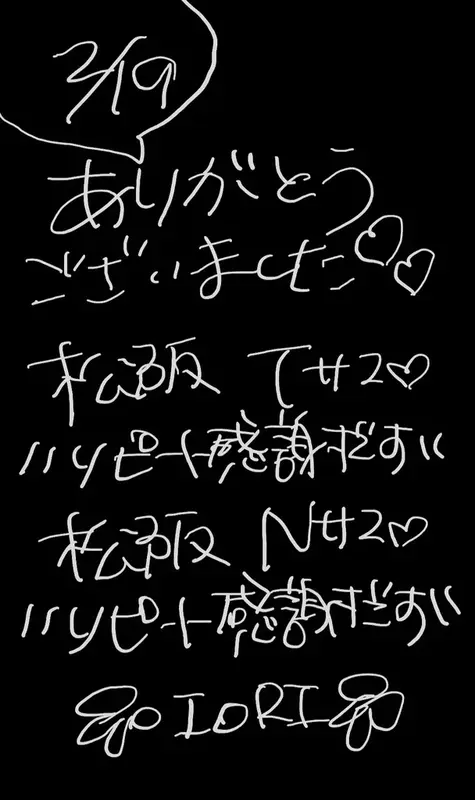 2/19
ありがとう
ございました♡♡
松阪 Tサス♡
〃リピート感謝だす〃
松阪 Nサス♡
〃リピート感謝だす〃
IORI